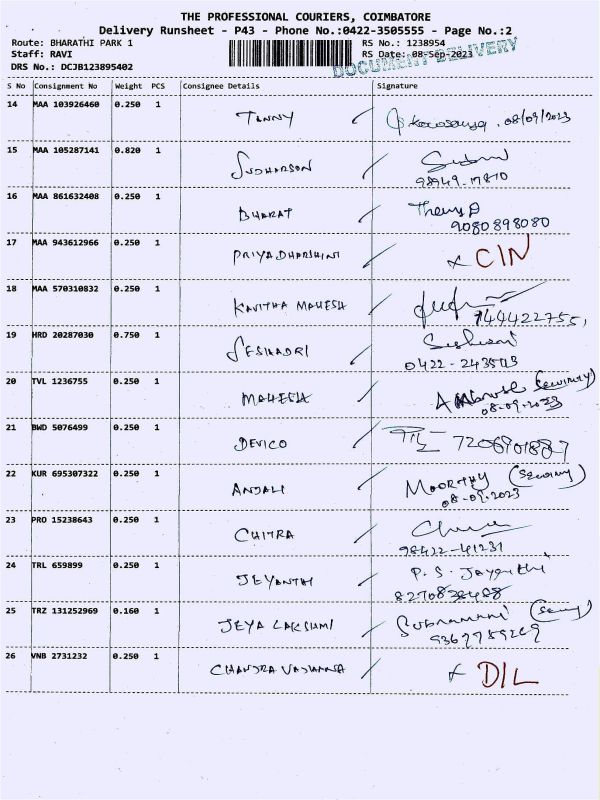 THE PROFESSIONAL COURIERS, COIMBATORE
Delivery Runsheet - P43 - Phone No.:0422-3505555 - Page No.:2
Route: BHARATHI PARK 1 RS No.: 1238954
Staff: RAVI RS Date: 08-Sep-2023
DOCUMENT DELIVERY
DRS No.: DCJB123895402
S No Consignment No Weight PCS Consignee Details Signature
14 MAA 103926460 0.250 1 TANNY 08/09/2023
15 MAA 105287141 0.820 1 SUDHARSON
98949-17870
16 MAA 861632408 0.250 1 BHARAT
9080898080
17 MAA 943612966 0.250 1 PRIYADHARSHINI x CIN
18 MAA 570310832 0.250 1 KAVITHA MAHESH
744422755
19 HRD 20287030 0.750 1 SESHADRI
0422-243543
20 TVL 1236755 0.250 1 MAHESH (Security)
08-09-2023
21 BWD 5076499 0.250 1 DEVICO
22 KUR 695307322 0.250 1 ANJALI MOORTHY (Security)
08-09-2023
23 PRO 15238643 0.250 1 CHITRA
98422-41231
24 TRL 659899 0.250 1 JEYANTHI P.S. Jayanthi
25 TRZ 131252969 0.160 1 JEYA LAKSHMI Subramani
26 VNB 2731232 0.250 1 CHANDRA x D/L